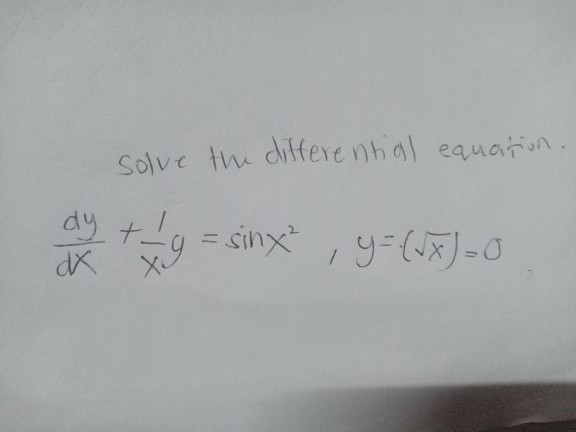 solve the differential equation.
dy/dx + 1/x y = sinx² , y=(√x)=0